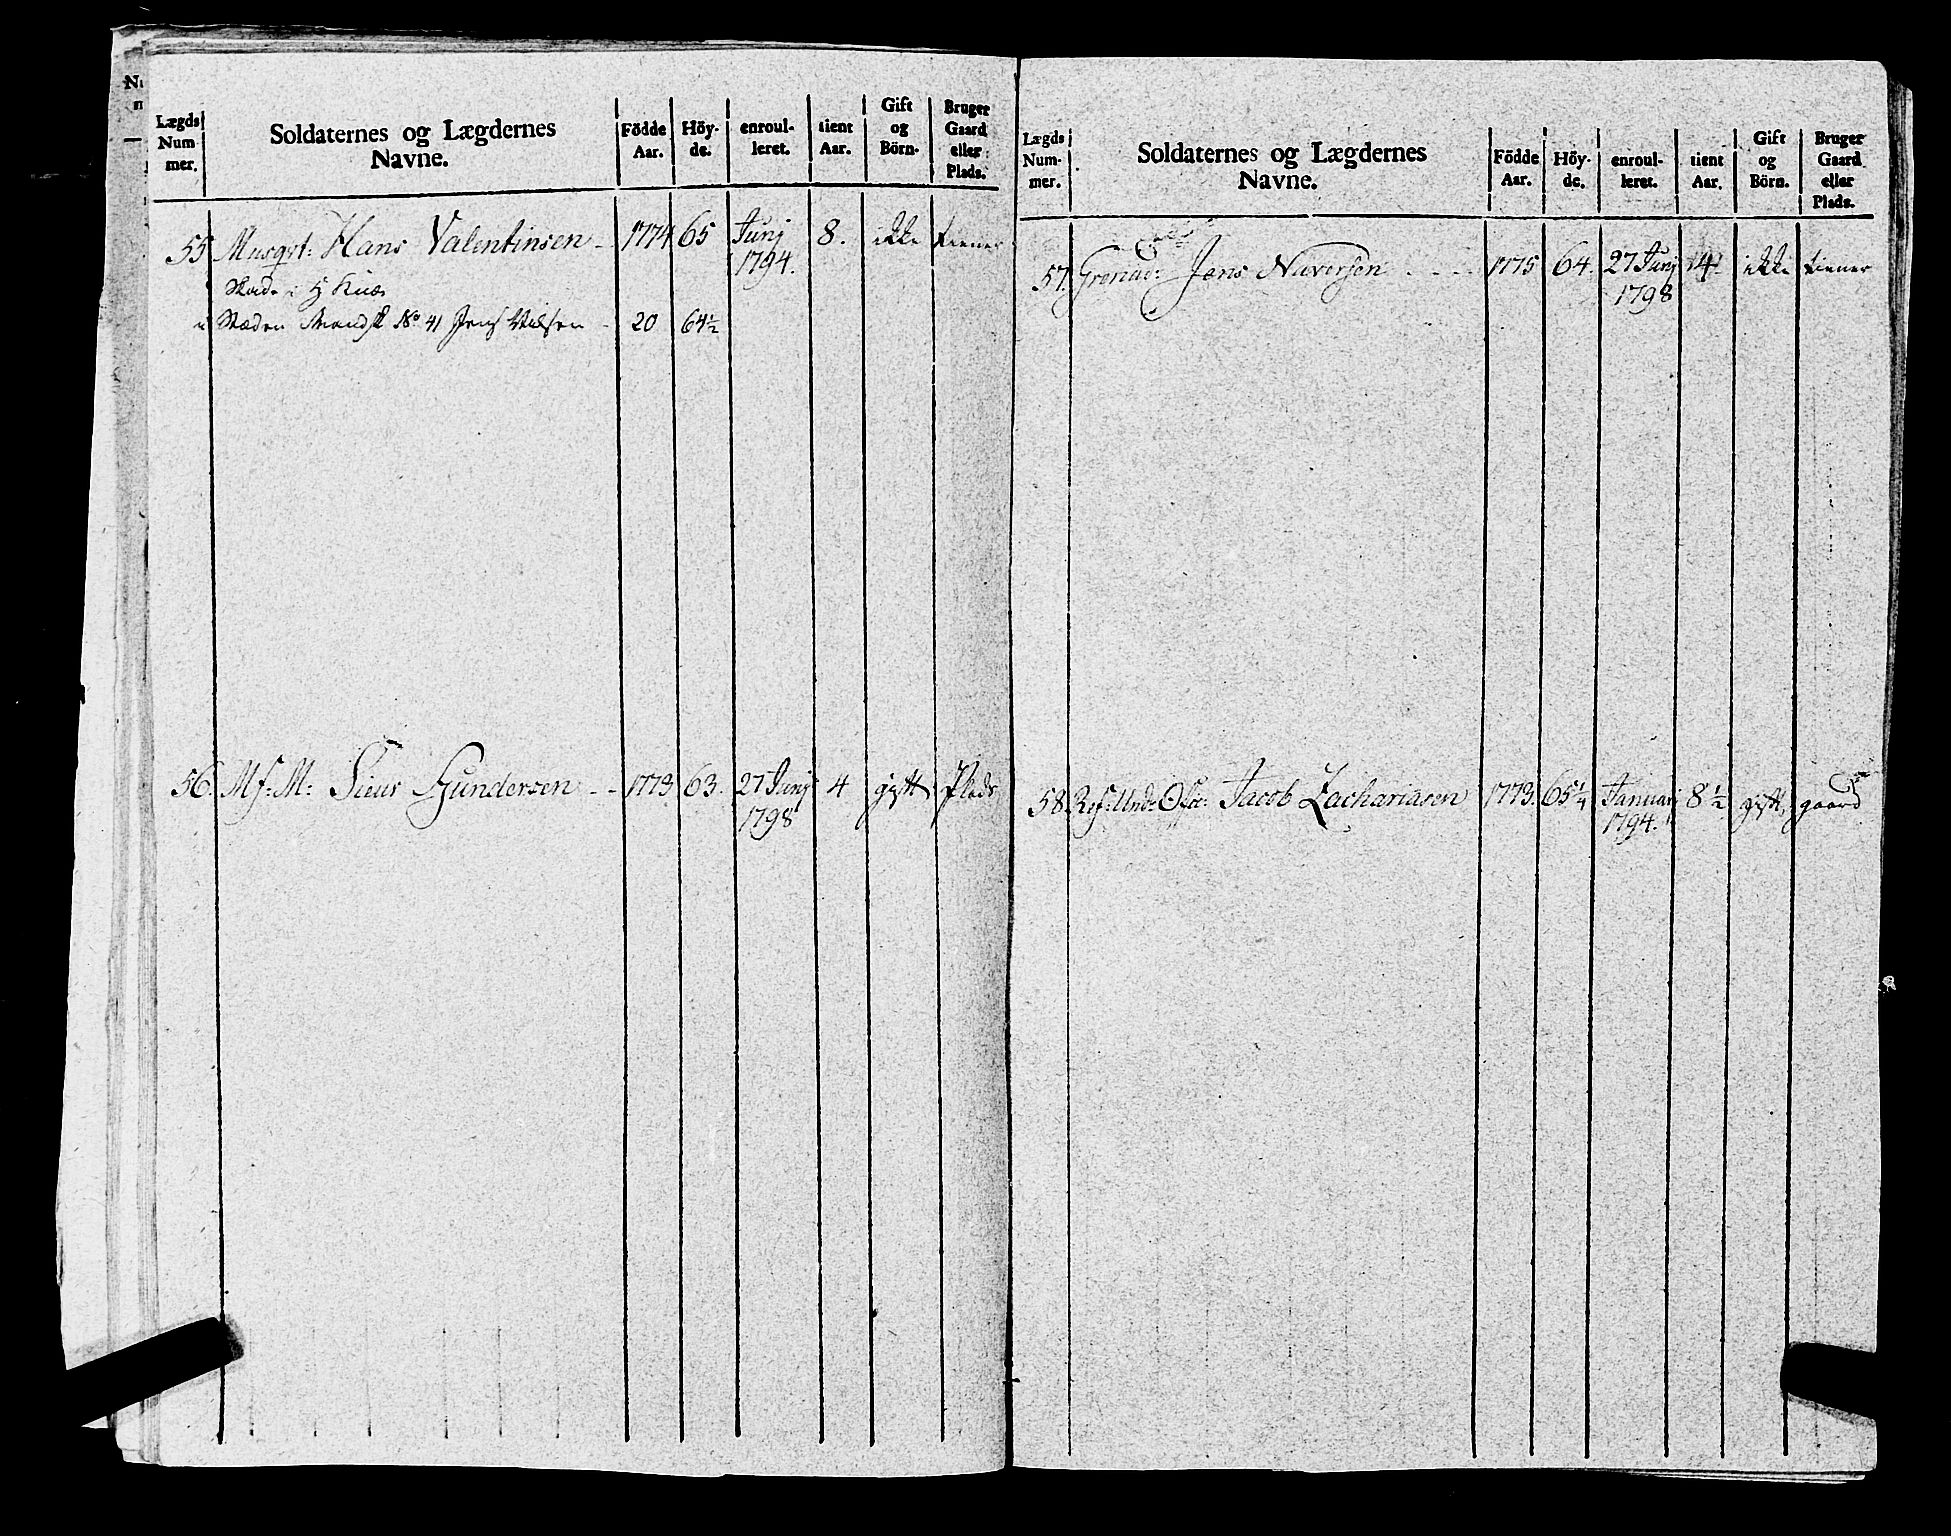 Lægds Num mer. Soldaternes og Lægdernes Navne. Födde Aar. Höy- de. enroul- leret. tient Aar. Gift og Börn. Bruger Gaard eller Plads.
55 Musqvt: Hans Valentinsen 1774 65 Junj 1794. 8. ikke tiener
Skade i Knæ
20 64½
56. Mf: M: Siur Gundersen 1773 63. 27 Junj 1798 4 gyft Plads
Lægds Num- mer. Soldaternes og Lægdernes Navne. Födde Aar. Höy- de. enroul- leret. tient Aar. Gift og Börn. Bruger Gaard eller Plads.
57. Grenad: Jens Iversen 1775 64. 27 Junj 1798 4 ikke tiener
58. Ref: Und: Ofic: Jacob Zachariasen 1773. 65¼ Januarj 1794. 8½ gyft, gaard